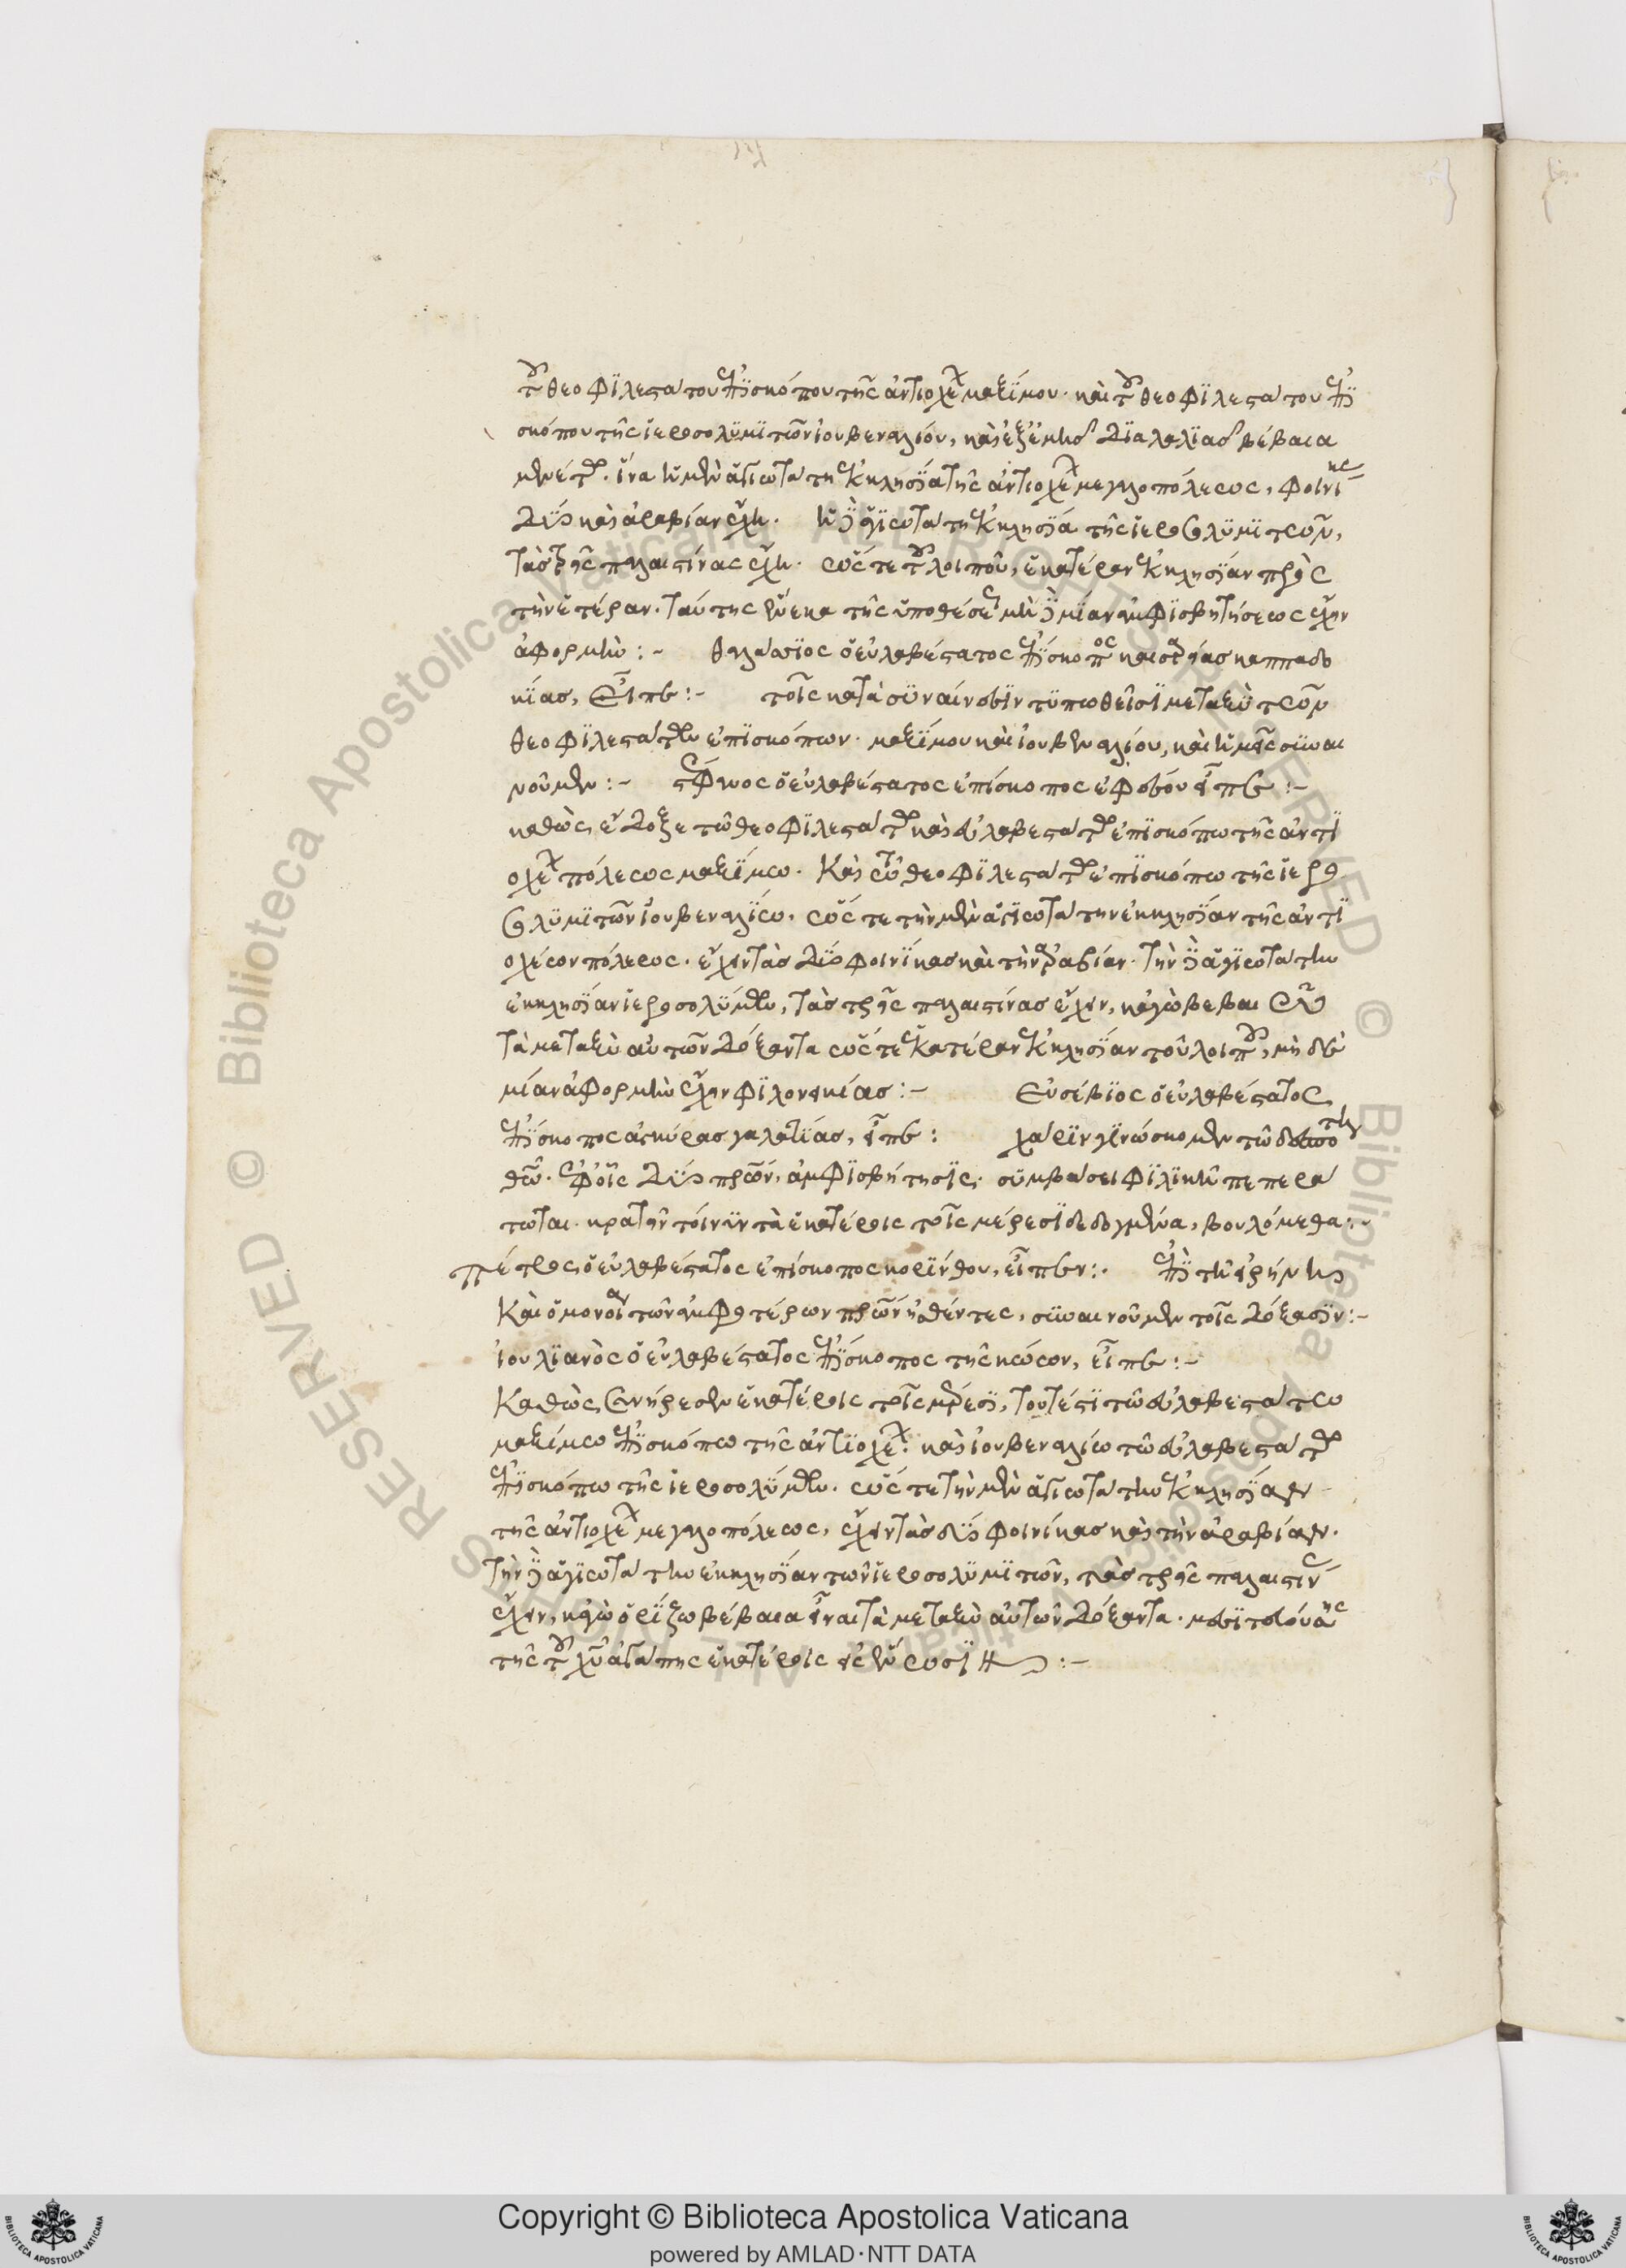 τοῦ θεοφιλεστάτου ἐπισκόπου τῆς ἀντιοχέων μαξίμου. καὶ τοῦ θεοφιλεστάτου ἐπι
σκόπου τῆς ἱεροσολυμιτῶν ἰουβεναλίου, καὶ ἐξ ἡμετέρας διαλαλίας βέβαια
μενέτω. ἵνα ἡ μὲν ἁγιωτάτη ἐκκλησία τῆς ἀντιοχέων μεγαλοπόλεως, φοινίκης
δύο καὶ ἀραβίαν ἔχῃ. ἡ δὲ ἁγιωτάτη ἐκκλησία τῆς ἱεροσολυμιτῶν,
τὰς τρεῖς παλαιστίνας ἔχῃ. ὥστε τοῦ λοιποῦ, ἑκατέραν ἐκκλησίαν πρὸς
τὴν ἑτέραν. ταύτης ἕνεκα τῆς ὑποθέσεως μηδεμίαν ἀμφισβητήσεως ἔχειν
ἀφορμήν :- θαλάσσιος ὁ εὐλαβέστατος ἐπίσκοπος καισαρείας καππαδο
κίας, εἶπε :- τοῖς κατὰ συναίνεσιν τυπωθεῖσι μεταξὺ τῶν
θεοφιλεστάτων ἐπισκόπων. μαξίμου καὶ ἰουβεναλίου, καὶ ἡμεῖς συναι
νοῦμεν :- στέφανος ὁ εὐλαβέστατος ἐπίσκοπος ἐφέσου εἶπε :-
καθὼς ἔδοξε τῷ θεοφιλεστάτῳ καὶ εὐλαβεστάτῳ ἐπισκόπῳ τῆς ἀντι
οχέων πόλεως μαξίμῳ. καὶ τῷ θεοφιλεστάτῳ ἐπισκόπῳ τῆς ἱερο
σολυμιτῶν ἰουβεναλίῳ. ὥστε τὴν μὲν ἁγιωτάτην ἐκκλησίαν τῆς ἀντι
οχέων πόλεως. ἔχειν τὰς δύο φοινίκας καὶ τὴν ἀραβίαν. τὴν δὲ ἁγιωτάτην
ἐκκλησίαν ἱεροσολύμων, τὰς τρεῖς παλαιστίνας ἔχειν, κἀγὼ βεβαιῶ
τὰ μεταξὺ αὐτῶν δόξαντα ὥστε ἑκατέραν ἐκκλησίαν τοῦ λοιποῦ, μηδε
μίαν ἀφορμὴν ἔχειν φιλονεικίας :- εὐσέβιος ὁ εὐλαβέστατος
ἐπίσκοπος ἀγκύρας γαλατίας, εἶπε : χάριν γινώσκομεν τῷ δεσπότῃ
θεῷ. ἐφ' οἷς δύο πατέρων, ἀμφισβήτησις συμβάσει φιλικῇ πεπερά
τωται. κρατεῖν τοίνυν τὰ ἑκατέροις τοῖς μέρεσι δεδογμένα, βουλόμεθα :-
πέτρος ὁ εὐλαβέστατος ἐπίσκοπος κορίνθου, εἶπεν :. ἐπὶ τῇ εἰρήνῃ
καὶ ὁμονοίᾳ τῶν ἀμφοτέρων πατέρων ἡσθέντες, συναινοῦμεν τοῖς δόξασιν :-
ἰουλιανὸς ὁ εὐλαβέστατος ἐπίσκοπος τῆς κώων, εἶπε :-
καθὼς συνήρεσεν ἑκατέροις τοῖς μέρεσι, τουτέστι τῷ εὐλαβεστάτῳ
μαξίμῳ ἐπισκόπῳ τῆς ἀντιοχέων. καὶ ἰουβεναλίῳ τῷ εὐλαβεστάτῳ
ἐπισκόπῳ τῆς ἱεροσολύμων. ὥστε τὴν μὲν ἁγιωτάτην ἐκκλησίαν
τῆς ἀντιοχέων μεγαλοπόλεως, ἔχειν τὰς δύο φοινίκας καὶ τὴν ἀραβίαν.
τὴν δὲ ἁγιωτάτην ἐκκλησίαν τῶν ἱεροσολυμιτῶν, τὰς τρεῖς παλαιστίνας
ἔχειν, κἀγὼ ὁρίζω βέβαια εἶναι τὰ μεταξὺ αὐτῶν δόξαντα. μεσιτευούσης
τῆς τοῦ χυ ἀγάπης ἑκατέροις εἰς ἕνωσιν :-
Copyright © Biblioteca Apostolica Vaticana
powered by AMLAD·NTT DATA